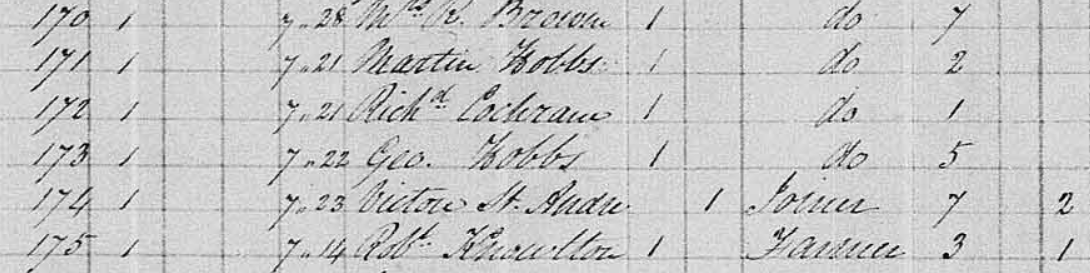 170 1 7.,28 Mrs R. Brown 1 do 7
171 1 7.,21 Martin Hobbs 1 do 2
172 1 7.,21 Richd Cochrane 1 do 1
173 1 7.,22 Geo. Hobbs 1 do 5
174 1 7.,23 Victor St. Andre 1 Joiner 7 2
175 1 7.,14 Robt Knowlton 1 Farmer 3 1